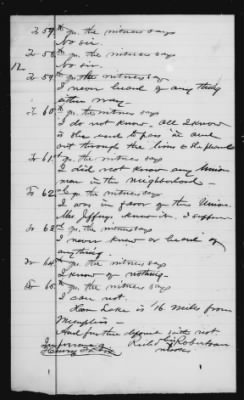 To 57th qr. the witness says
No sir.
To 58th qr. the witness says
No sir.
12
To 59th qr. the witness says
I never heard of any thing
either way —
To 60th qr. the witness says
I do not know, all I know
is she used to pass in and
out through the lines & she
To 61st qr. the witness says
I did not know any Union
men in the neighborhood —
To 62d qr. the witness says
I was in favor of the Union.
Mrs Jeffreys knew it. I
To 63rd qr. the witness says
I never knew or heard of
anything.
To 64th qr. the witness says
I know of nothing —
To 65th qr. the witness says
I can not.
Lake is 16 miles from
Memphis —
And further deponent saith not
Robertson